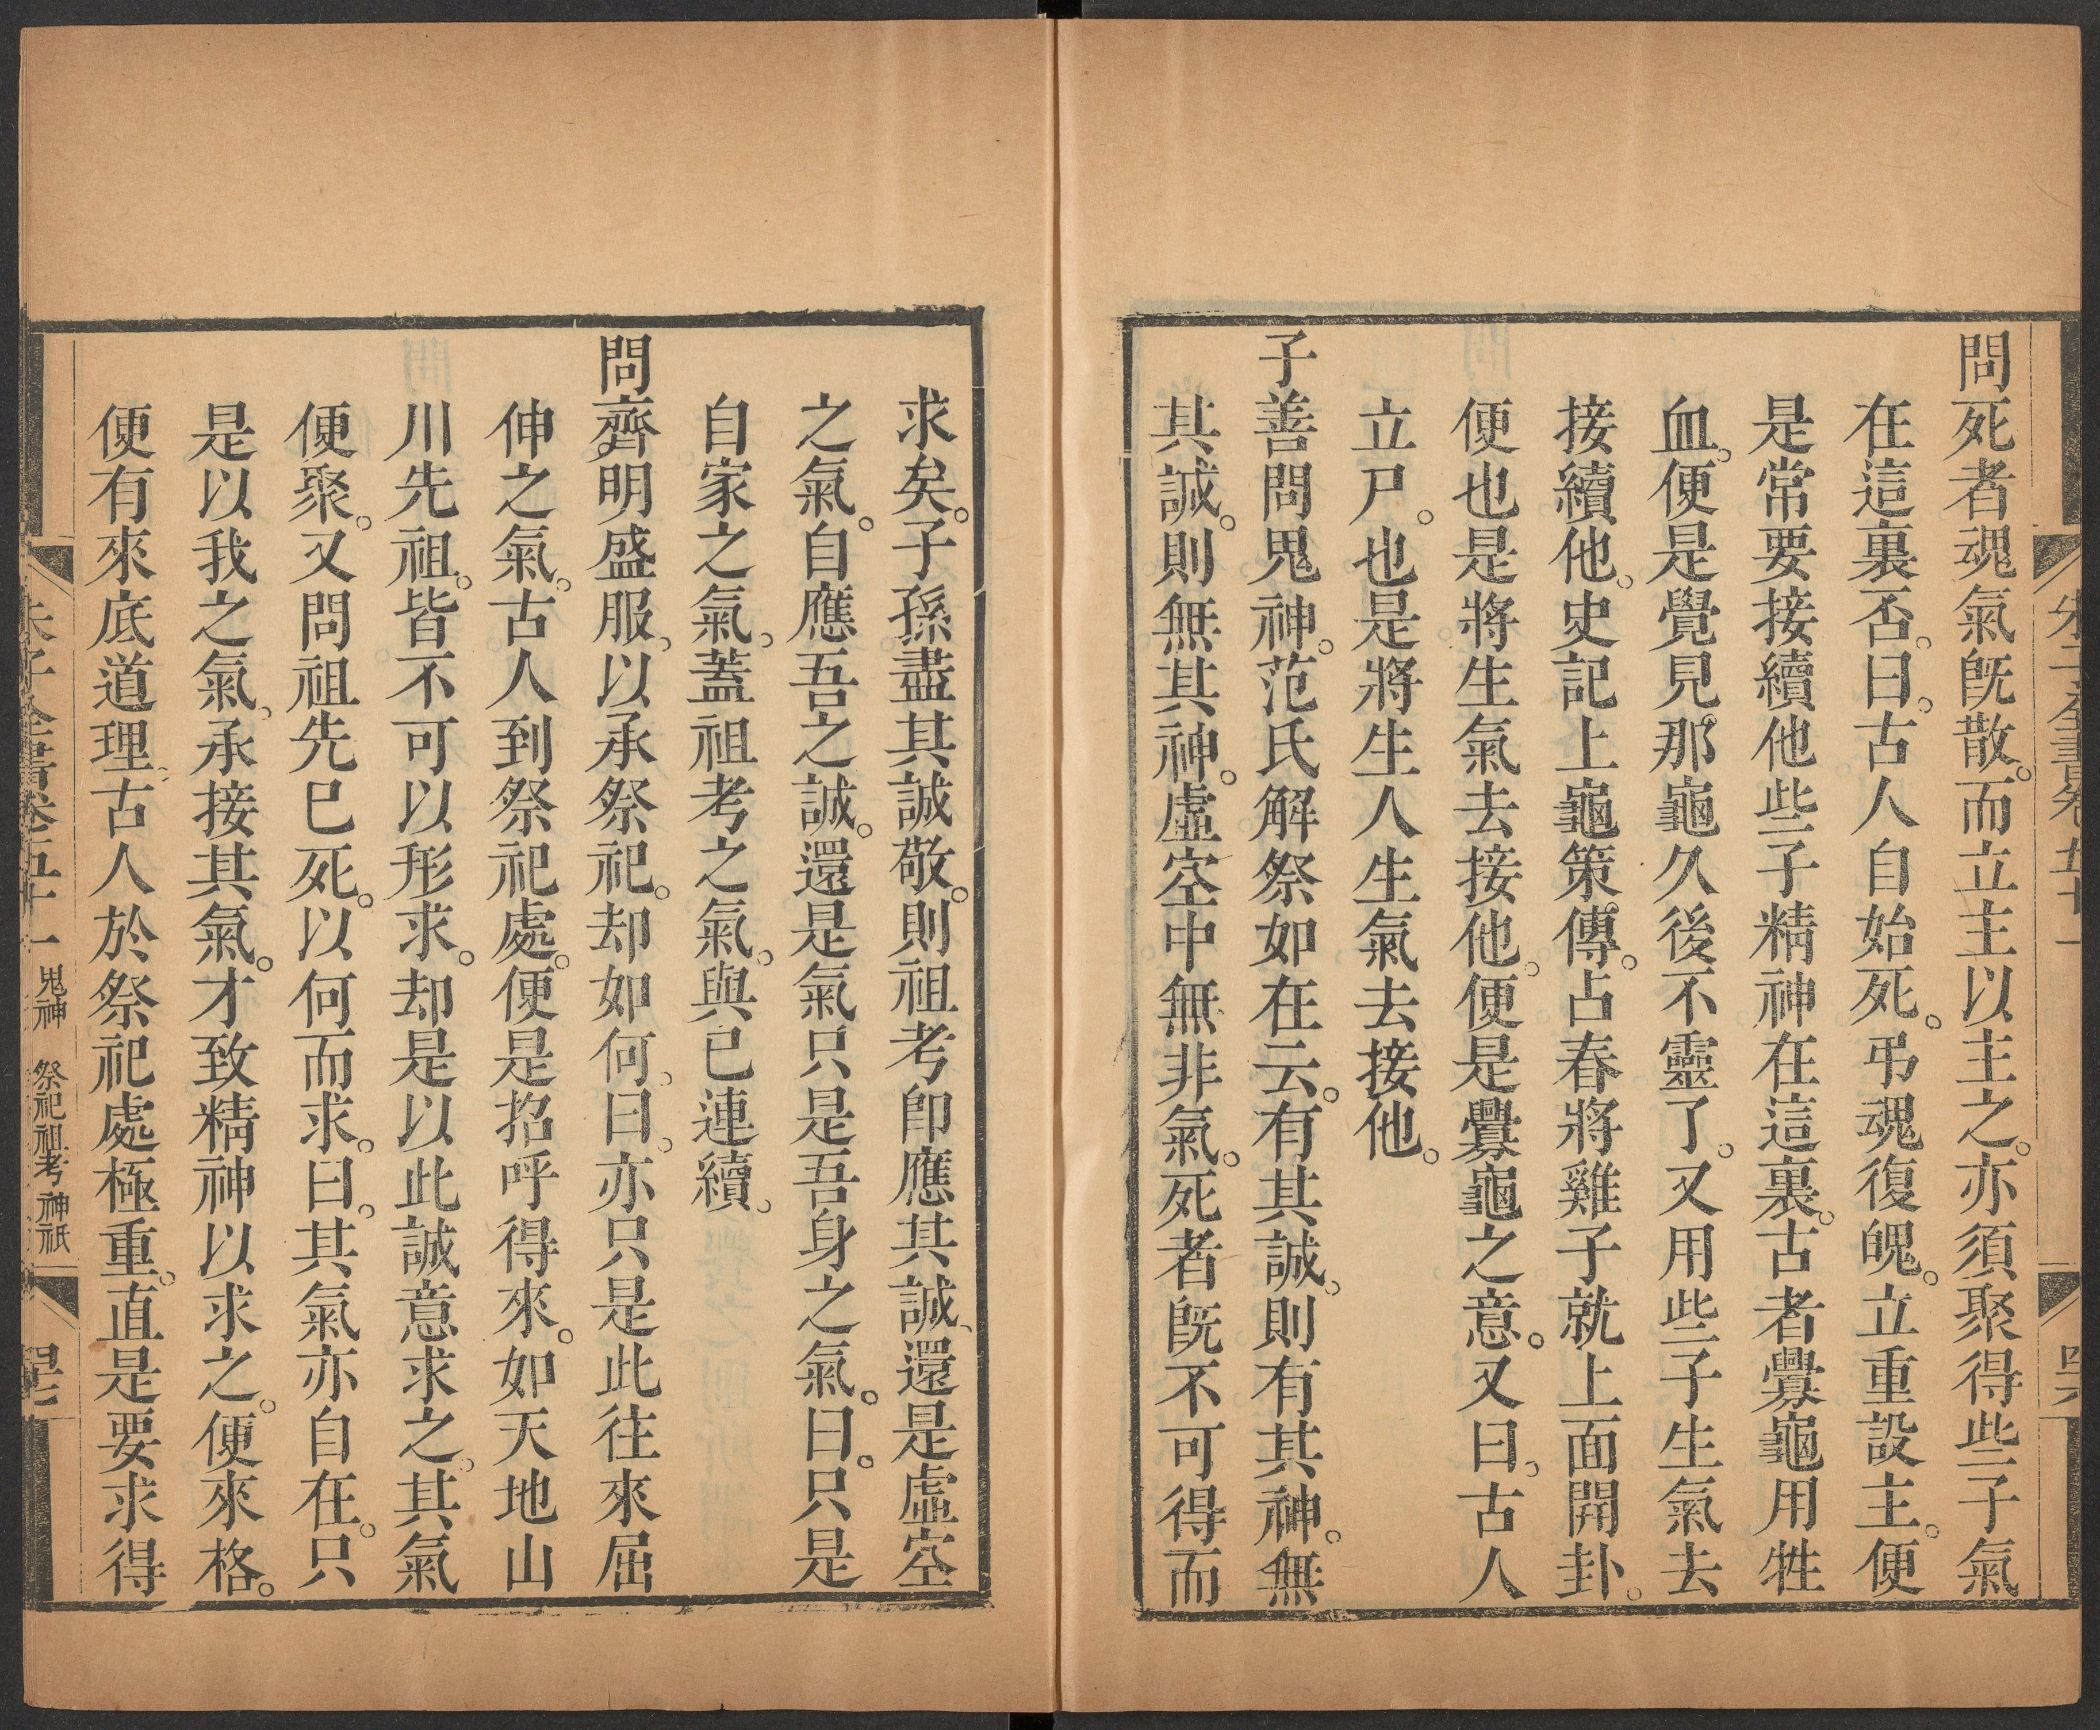 問死者魂氣旣散。而立主以主之。亦須聚得些子氣
在這裏否。曰。古人自始死。弔魂復魄。立重設主。便
是常要接續他些子精神在這裏。古者釁龜用牲
血。便是覺見那龜久後不靈了。又用些子生氣去
接續他。史記上龜策傳。占春將雞子就上面開卦。
便也是將生氣去接他。便是釁龜之意。又曰。古人
立尸。也是將生人生氣去接他。
子善問鬼神。范氏解祭如在云。有其誠。則有其神。無
其誠。則無其神。虛空中無非氣。死者旣不可得而
求矣。子孫盡其誠敬。則祖考卽應其誠、還是虛空
之氣。自應吾之誠。還是氣只是吾身之氣。曰。只是
自家之氣。蓋祖考之氣。與已連續。
問齊明盛服、以承祭祀。却如何。曰。亦只是此往來屈
伸之氣。古人到祭祀處。便是招呼得來。如天地山
川先祖。皆不可以形求。却是以此誠意求之。其氣
便聚。又問祖先已死。以何而求。曰。其氣亦自在。只
是以我之氣。承接其氣。才致精神以求之。便來格。
便有來底道理。古人於祭祀處極重。直是要求得
朱子全書卷五十一 鬼神 祭祀祖考神祇